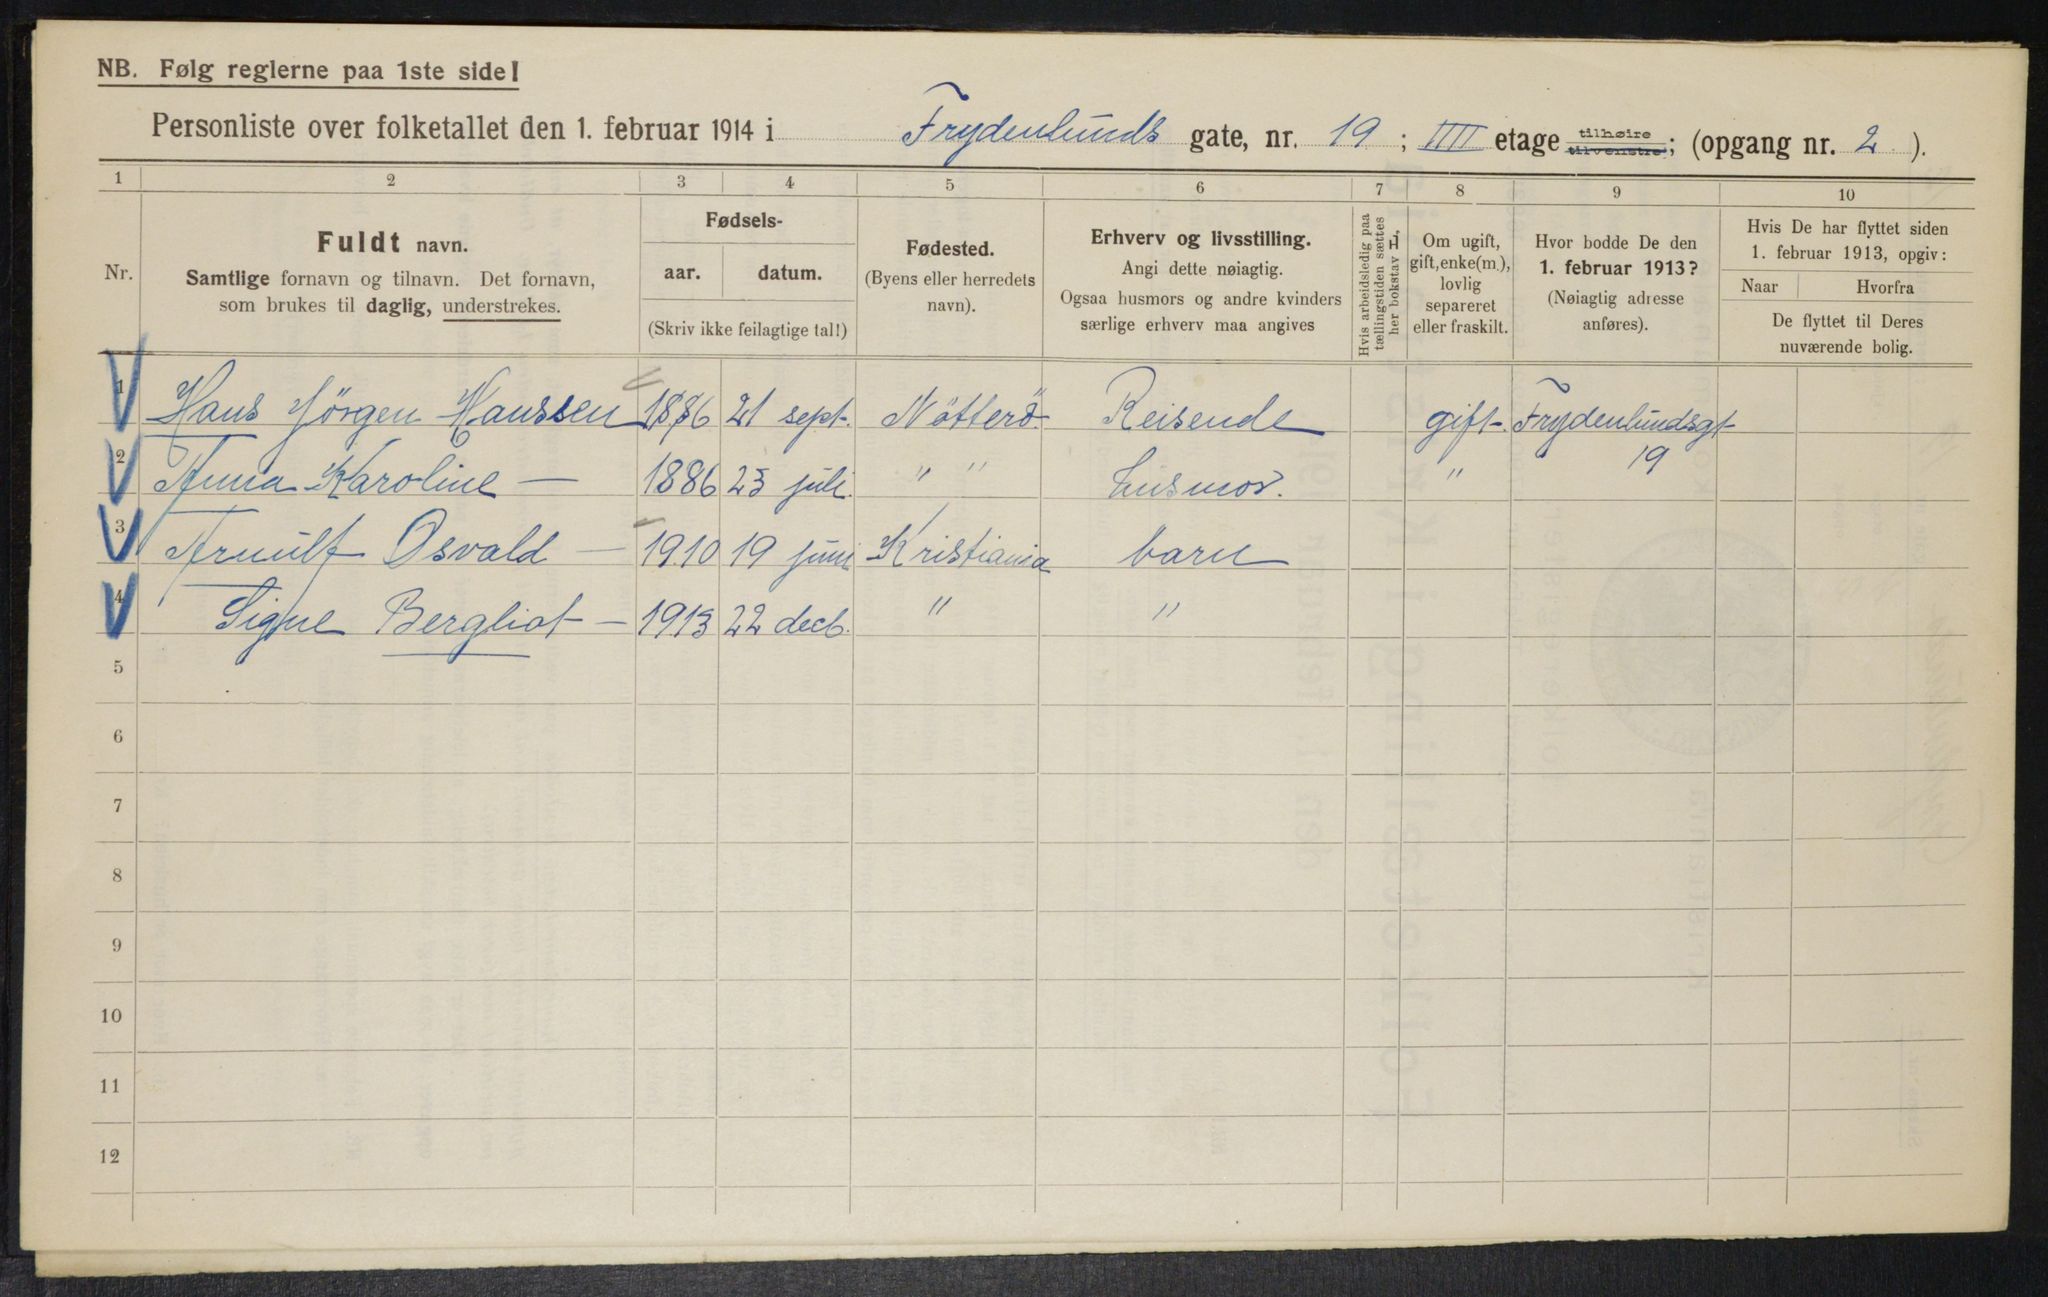 NB. Følg reglerne paa 1ste side!
Personliste over folketallet den 1. februar 1914 i Frydenlunds gate, nr. 19 ; IIII etage tilhøire tilvenstre; (opgang nr. 2 ).
1 2 3 4 5 6 7 8 9 10
Nr.
Fuldt navn.
Samtlige fornavn og tilnavn. Det fornavn,
som brukes til daglig, understrekes.
Fødsels-
aar. datum.
(Skriv ikke feilagtige tal!)
Fødested.
(Byens eller herredets
navn).
Erhverv og livsstilling.
Angi dette nøiagtig.
Ogsaa husmors og andre kvinders
særlige erhverv maa angives
Hvis arbeidsledig paa
tællingstiden sættes
her bokstav L.
Om ugift,
gift, enke(m.),
lovlig
separeret
eller fraskilt.
Hvor bodde De den
1. februar 1913?
(Nøiagtig adresse
anføres).
Hvis De har flyttet siden
1. februar 1913, opgiv:
Naar Hvorfra
De flyttet til Deres
nuværende bolig.
1 Hans Jörgen Hanssen 1886 21 sept. Nötterö Reisende gift. Frydenlundsgt
19
2 Anna Karoline — 1886 23 juli. " " husmor. "
3 Arnulf Osvald — 1910 19 juni Kristiania barn
4 Signe Bergliot — 1913 22 decb. " "
5
6
7
8
9
10
11
12